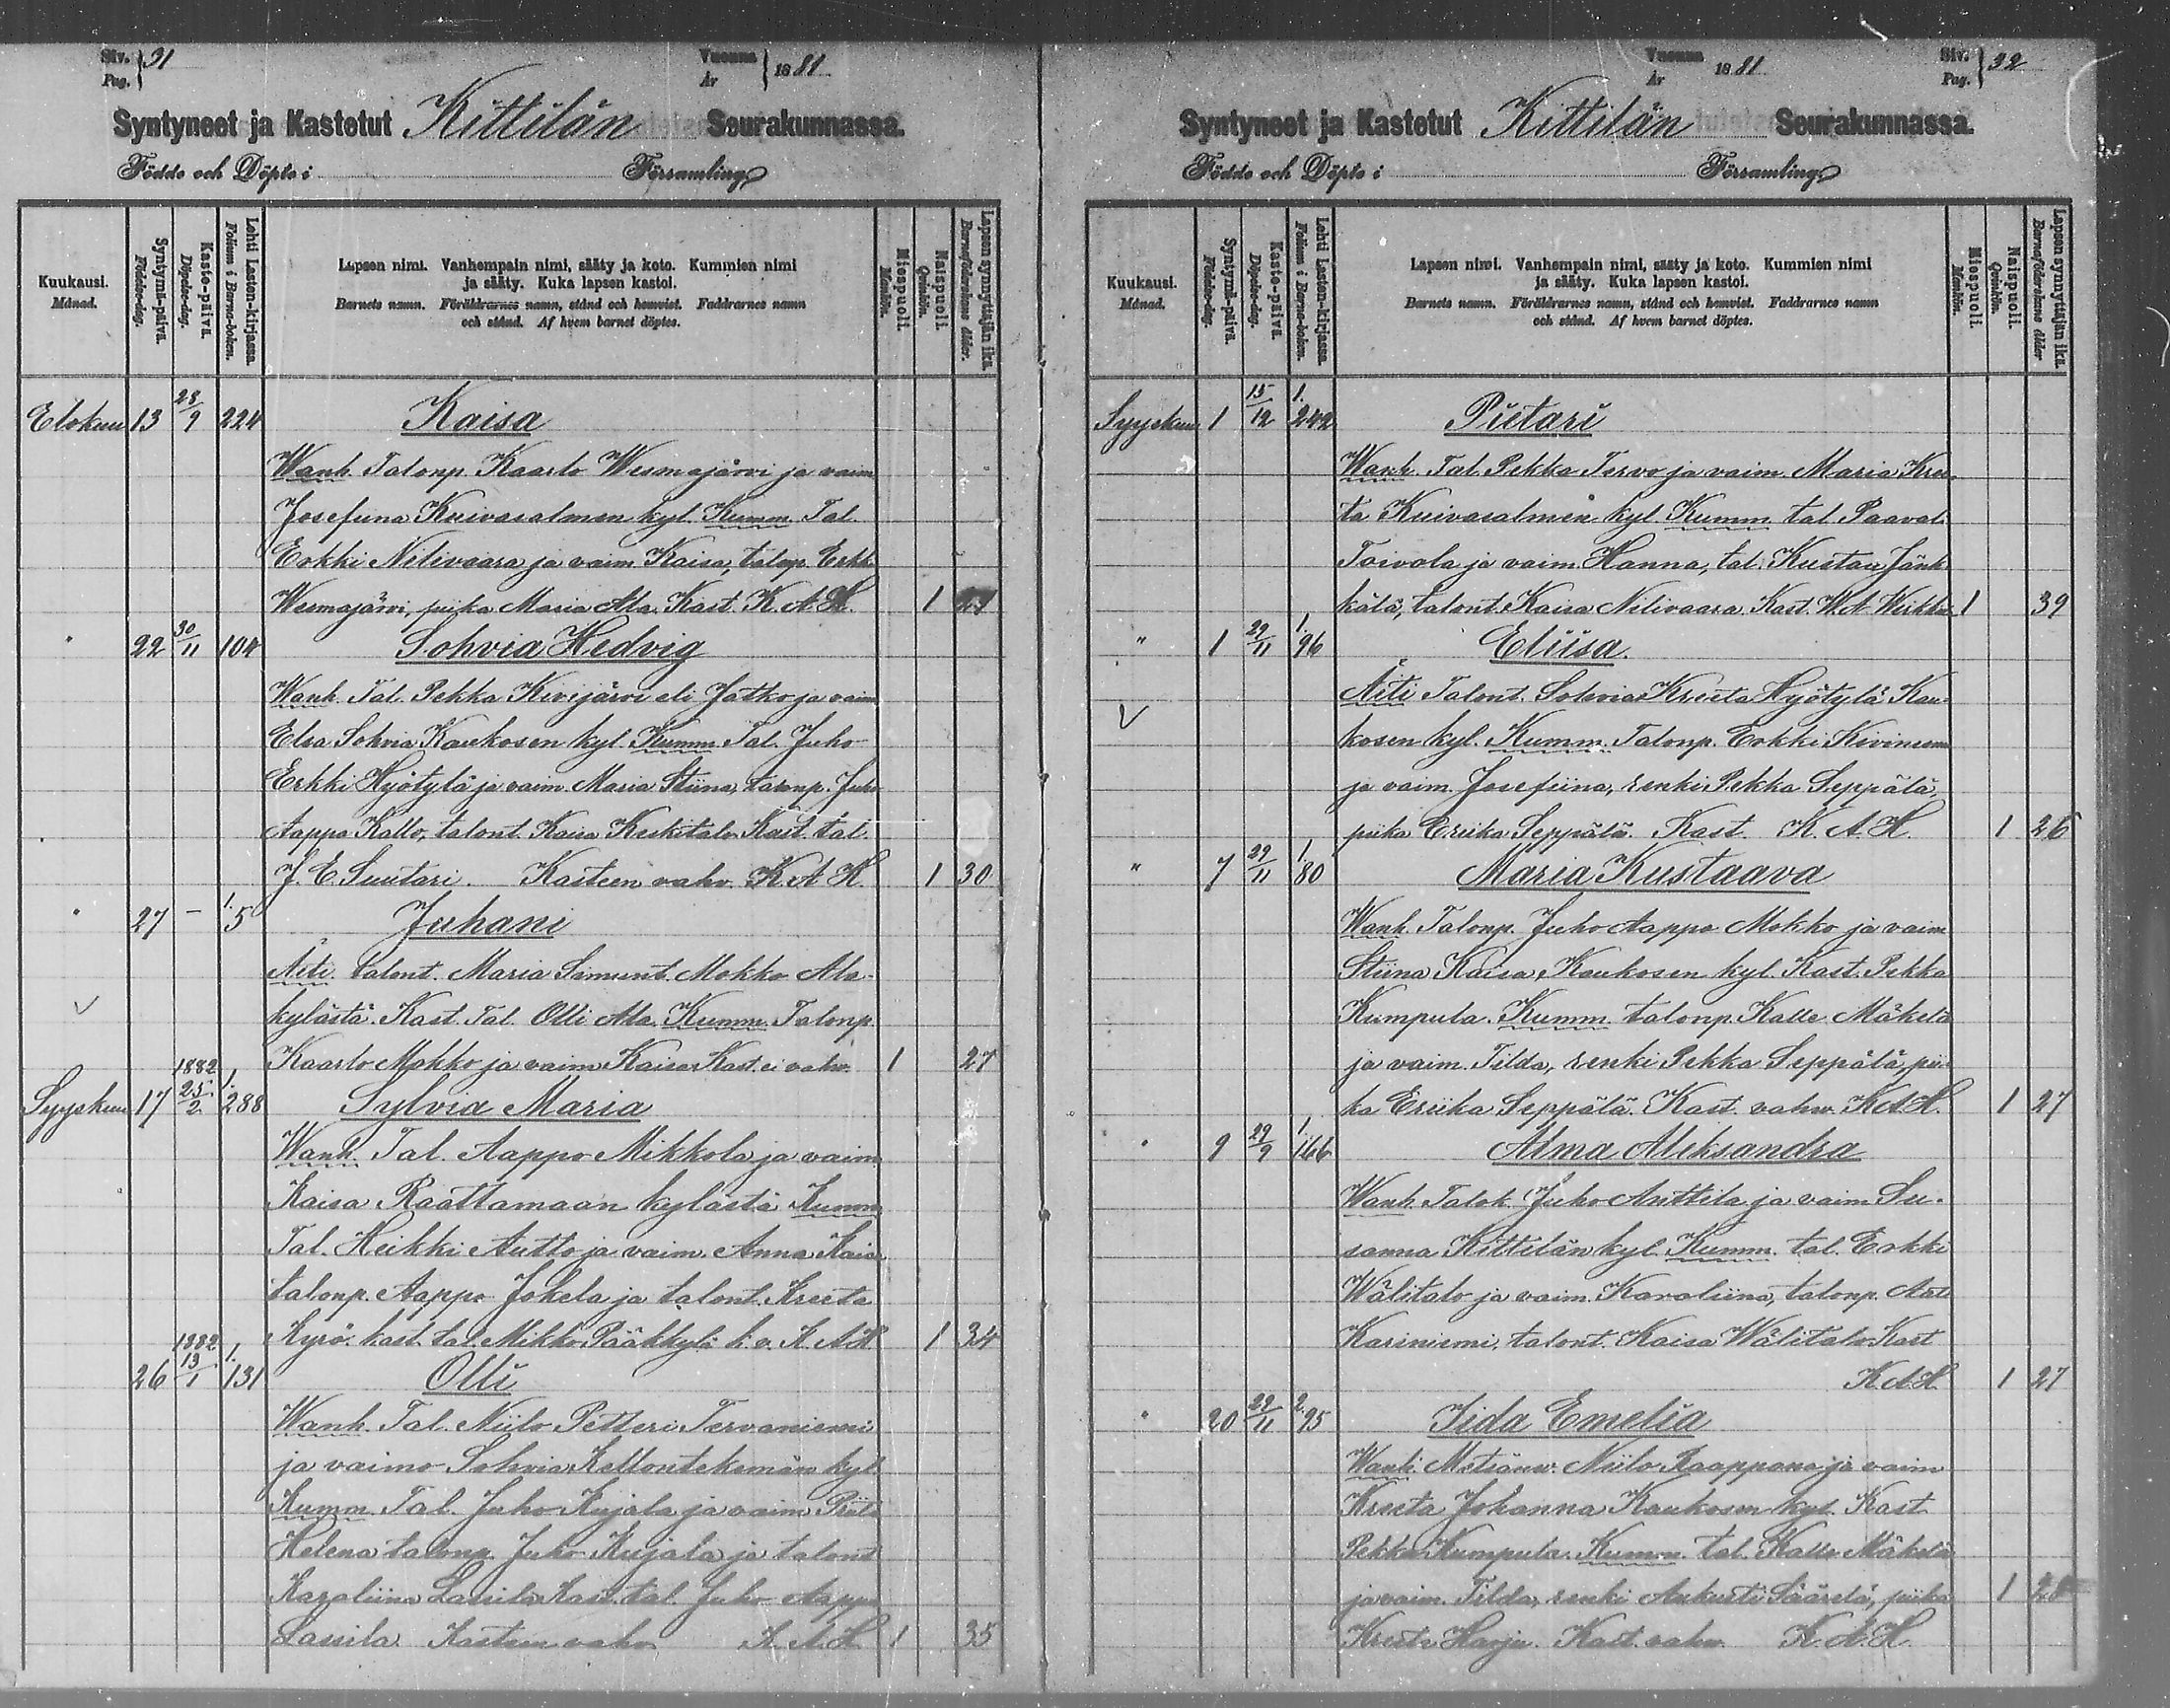 Siv. 31
Pag.
Vuonna 1881
År
Syntyneet ja Kastetut Kittilän Seurakunnassa.
Födde och Döpte i Församling
Kuukausi.
Månad.
Syntymä-päivä.
Födelse-dag.
Kaste-päivä.
Döpelse-dag.
Lehti Lasten-kirjassa.
Folium i Barna-boken.
Lapsen nimi. Vanhempain nimi, sääty ja koto. Kummien nimi
ja sääty. Kuka lapsen kastoi.
Barnets namn. Föräldrarnes namn, stånd och hemvist. Faddrarnes namn
och stånd. Af hvem barnet döptes.
Miespuoli.
Mankön.
Naispuoli.
Qvinkön.
Lapsen synnyttäjän ikä.
Barnaföderskans ålder.
Elokuu 13 28/9 224 Kaisa
Wanh. Talonp. Kaarlo Wesmajärvi ja vaim
Josefiina Kuivasalmen kyl. Kumm. Tal.
Erkki Nilivaara ja vaim Kaisa, talonp. Erkk
Wesmajärvi, piika Maria Ala. Kast. K. A. H. 1
" 22 30/11 104 Sohvia Hedvig
Wanh. Tal. Pekka Kivijärvi eli Jatko ja vaim
Elsa Sohvia Kaukosen kyl. Kumm. Tal. Juho
Erkki Hyötylä ja vaim. Maria Stiina, talonp. Juho
Aappo Kallo, talont. Kaisa Keskitalo Kast. tal.
J. E. Suutari. Kasteen vahv. K. A. H. 1 30
" 27 – 1. 5 Juhani
Äiti talont. Maria Simunt. Mokko Ala-
kylästä. Kast. Tal. Olli Ala. Kumm. Talonp.
Kaarlo Mokko ja vaim. Kaisa Kast. ei vahv. 1 27
Syyskuu 17 1882 25/2 1. 288 Sylvia Maria
Wanh. Tal. Aappo Mikkola ja vaim
Kaisa Raattamaan kylästä Kumm
Tal. Heikki Autto ja vaim. Anna Kaisa
talonp. Aappo Jokela ja talont. Kreeta
Kyrö. kast. tal. Mikko Pääkkylä k. v. K. A. H 1 34
26 1882 13/1 1. 131 Olli
Wanh. Tal. Niilo Petteri Tervaniemi
ja vaimo Sohvia Kellontekemän kyl.
Kumm. Tal. Juho Kujala ja vaim. Priita
Helena talonp. Juho Kujala ja talont
Karoliina Lassila Kast. tal. Juho Aappo
Lassila. Kasteen vahv. K. A. H. 1 35
Vuonna 1881
År
Siv. 32
Pag.
Syntyneet ja Kastetut Kittilän Seurakunnassa.
Födde och Döpte i Församling
Kuukausi.
Månad.
Syntymä-päivä.
Födelse-dag.
Kaste-päivä.
Döpelse-dag.
Lehti Lasten-kirjassa.
Folium i Barna-boken.
Lapsen nimi. Vanhempain nimi, sääty ja koto. Kummien nimi
ja sääty. Kuka lapsen kastoi.
Barnets namn. Föräldrarnes namn, stånd och hemvist. Faddrarnes namn
och stånd. Af hvem barnet döptes.
Miespuoli.
Mankön.
Naispuoli.
Qvinkön.
Lapsen synnyttäjän ikä.
Barnaföderskans ålder
Syyskuu 1 15/12 1. 242 Pietari
Wanh. Tal. Pekka Tervo ja vaim. Maria Kree-
ta Kuivasalmen kyl. Kumm. tal. Paavali
Toivola ja vaim. Hanna, tal. Kustau Jänk-
kälä, talont. Kaisa Nilivaara. Kast. W. A. 1 39
" 1 29/11 1. 96 Eliisa.
Äiti Talont. Sohvia Kreeta Hyötylä Kau-
kosen kyl. Kumm. Talonp. Erkki Kiviniemi
ja vaim. Josefiina, renki Pekka Seppälä,
piika Eriika Seppälä. Kast. K. A. H. 1 26
" 7 29/11 1. 80 Maria Kustaava
Wanh. Talonp. Juho Aappo Mokko ja vaim
Stiina Kaisa, Kaukosen kyl. Kast. Pekka
Kumpula. Kumm. talonp. Kalle Mäkelä
ja vaim. Tilda, renki Pekka Seppälä, pii-
ka Eriika Seppälä. Kast. vahv. K. A. H. 1 27
" 9 29/9 1. 166 Alma Aleksandra
Wanh. Talok. Juho Anttila ja vaim Su-
sanna Kittilän kyl. Kumm. tal. Erkki
Wälitalo ja vaim. Karoliina, talonp. Anti
Kariniemi, talont. Kaisa Wälitalo Kast
K. A. H. 1 27
" 20 29/11 2. 95 Iida Emelia
Wanh. Metsänv. Niilo Raappana ja vaim
Kreeta Johanna Kaukosen kyl. Kast
Pekka Kumpula. Kumm. tal. Kalle Mäkelä
ja vaim. Tilda, renki Aukusti Säärelä, piika 1 28
Kreeta Harju. Kast. vahv. K. A. H.